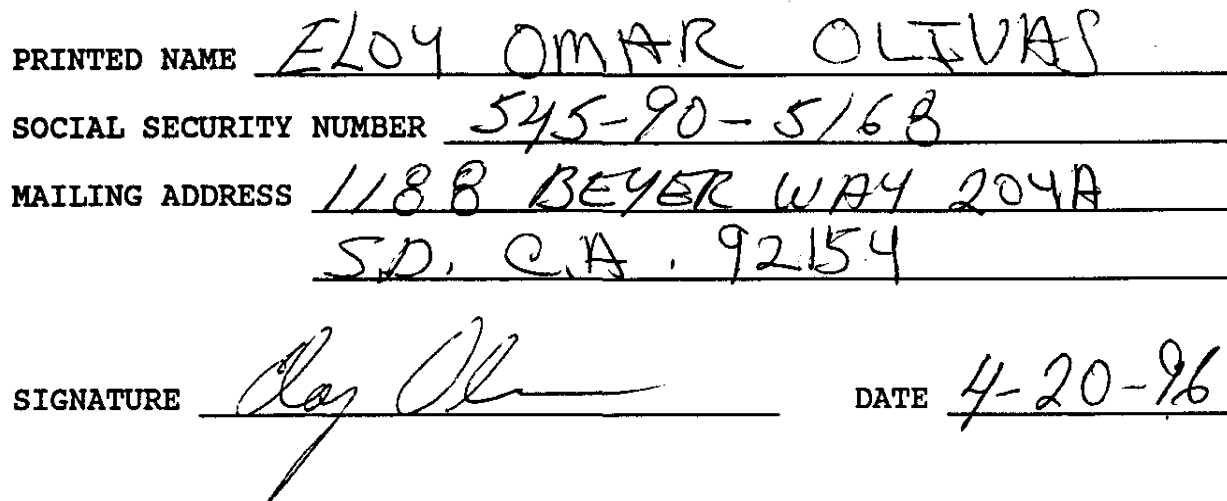 PRINTED NAME ELOY OMAR OLIVAS
SOCIAL SECURITY NUMBER 545-90-5168
MAILING ADDRESS 1188 BEYER WAY 204A
S.D. C.A. 92154
SIGNATURE Eloy DATE 4-20-96